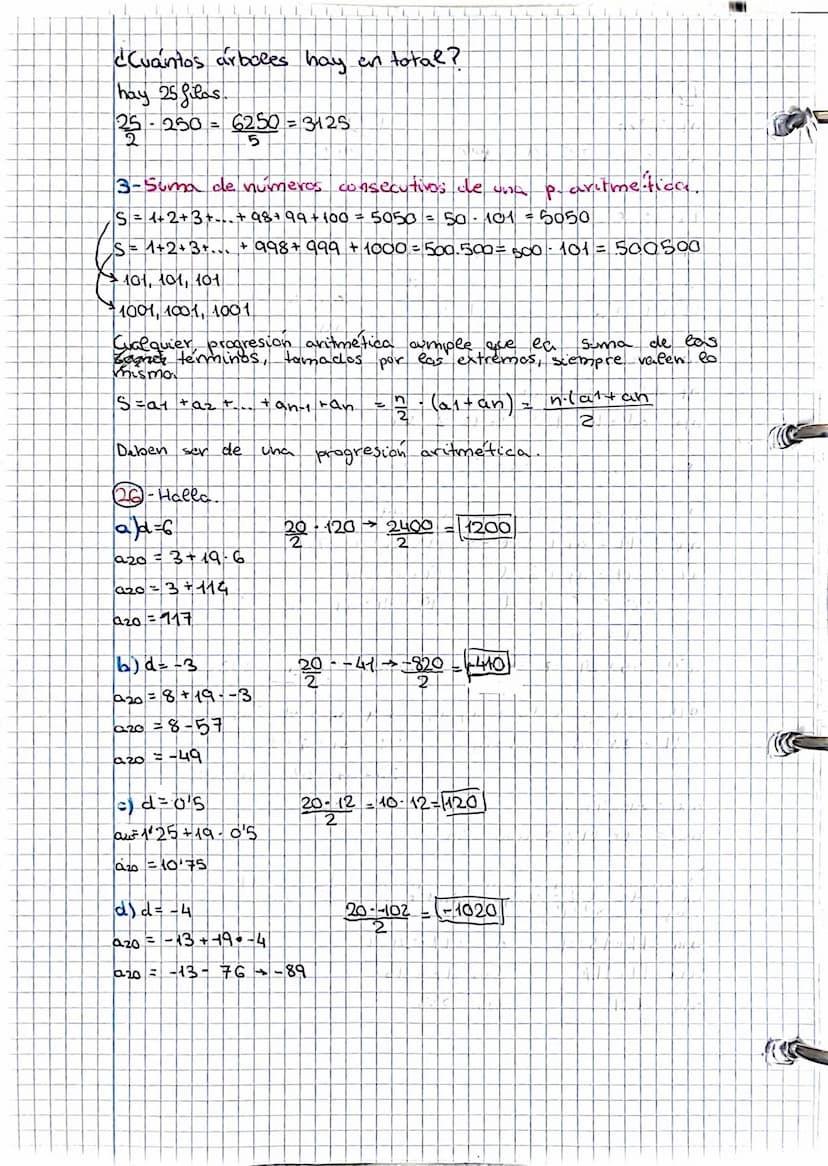 ¿Cuántos árboles hay en total?
hay 25 filas.
25/2 · 250 = 6250/5 = 3125
3-Suma de números consecutivos de una p. aritmética.
S = 1+2+3+...+98+99+100 = 5050 = 50 · 101 = 5050
S = 1+2+3+... + 998+999 +1000 = 500.500 = 500 · 101 = 500500
101, 101, 101
1001, 1001, 1001
Cualquier progresión aritmética cumple que la suma de los
términos, tomados por los extremos, siempre valen lo
mismo.
S = a1 + a2 + ... + an-1 + an = n/2 · (a1+an) = n·(a1+an/2
Deben ser de una progresión aritmética.
26-Halla.
a) d=6 20/2 · 120 → 2400/2 = 1200
a20 = 3+19·6
a20 = 3+114
a20 = 117
b) d= -3 20/2 · -41 → -820/2 = -410
a20 = 8+19·-3
a20 = 8-57
a20 = -49
c) d= 0'5 20·12/2 = 10·12= 120
a20= 1'25+19·0'5
a20 = 10'75
d) d= -4 20·-102/2 = -1020
a20 = -13+19·-4
a20 = -13- 76 → -89